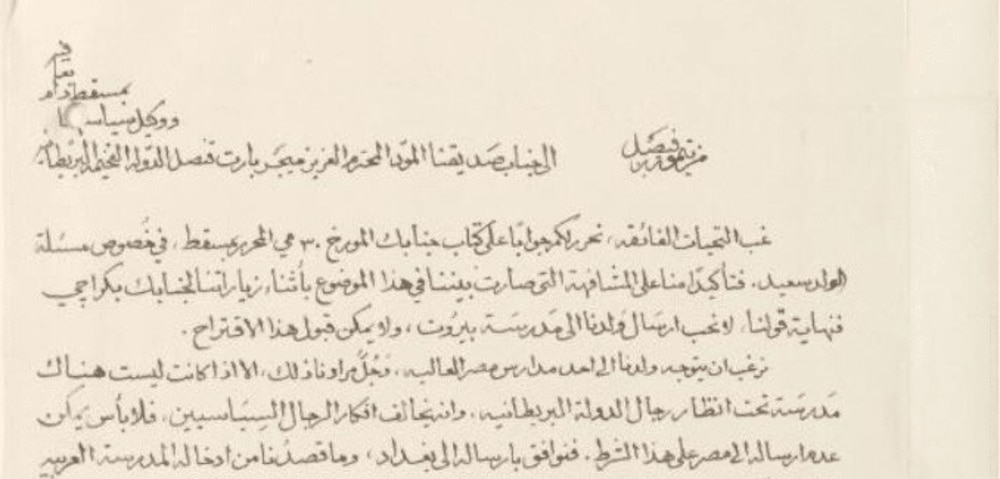 بمسقط دام
ووكيل سياسـ
من تيمور بن فيصل الى جناب صديقنا المود المحترم العزيز ميجر بارت قنصل الدولة الفخيمة البريطانيه
غب التحيات الفائقه، نحرر لكم جوابًا على كتاب جنابك المورخ ٣٠ مي المحرر بمسقط، في خُصوص مسئلة
الولد سعيد. فتأكيدًا منا على المشافهة التى صارت بيننا في هذا الموضوع بأثناء زياراتنا لجنابك بكراچي
فنهاية قولنا، لا نحب ارسال ولدنا الى مَدرسَة بيرُوت، ولا يمكن قبول هذا الاقتراح.
نرغب ان يتوجه ولدنا الى احد مدارس مصر العاليه، وَجُلُّ مرادنا ذلك، الا اذا كانت ليست هناك
مَدرسَة تحت انظار رجال الدولة البريطانيه، وانه يخالف افكار الرجال السيَاسيين، فلا بأس يمكن
عدم ارساله الى مصر على هذا الشرط. فنوافق بارساله الى بغداد، وما قصدُنا من ادخاله المدرسة العربيه